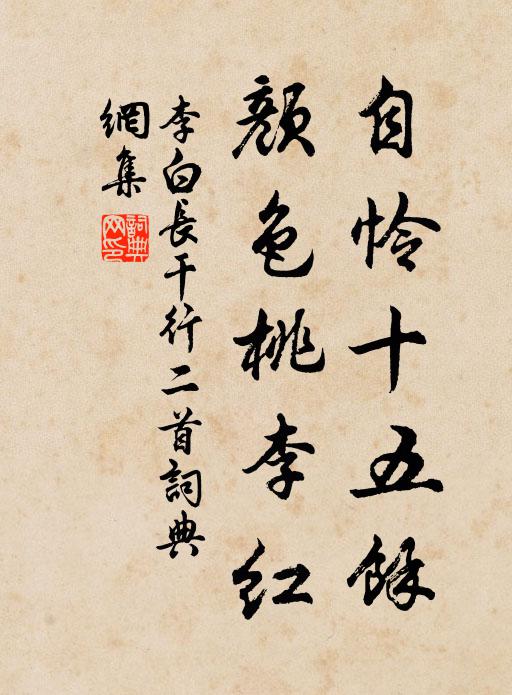 自怜十五餘
顔色桃李红
李白長干行二首詞典
網集
詞典网印